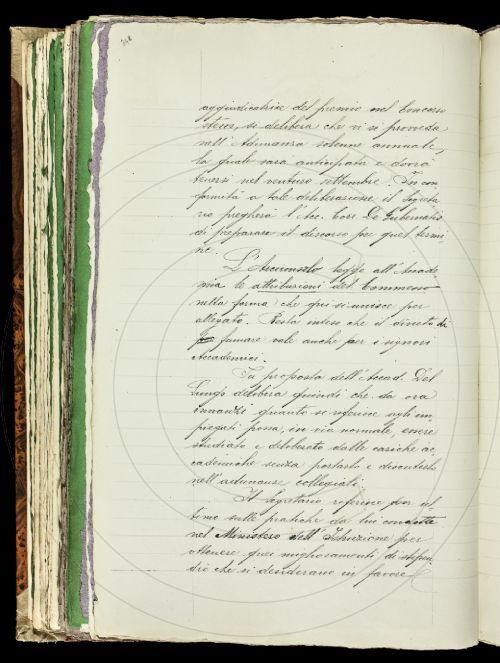 aggiudicatrice del premio nel Concorso
stesso, si delibera che vi si provveda
nell'Adunanza solenne annuale,
la quale sarà anticipata e dovrà
tenersi nel venturo settembre. In con
formità a tale deliberazione il Segreta
rio pregherà l'Acc. Corr. De Gubernatis
di preparare il discorso per quel termi
ne.
L'Arciconsolo legge all'Accade
mia le attribuzioni del Commesso
nella forma che qui si unisce per
allegato. Resta inteso che il divieto di
fumare vale anche per i signori
Accademici.
Su proposta dell'Accad. Del
Lungo delibera quindi che da ora
innanzi quanto si riferisce agli im
piegati possa, in via normale, essere
studiato e deliberato dalle cariche ac
cademiche senza portarlo e discuterlo
nell'adunanze collegiali.
Il segretario riferisce per ul
timo sulle pratiche da lui condotte
nel Ministero dell'Istruzione per
ottenere quei miglioramenti di stipen
dio che si desiderano in favore